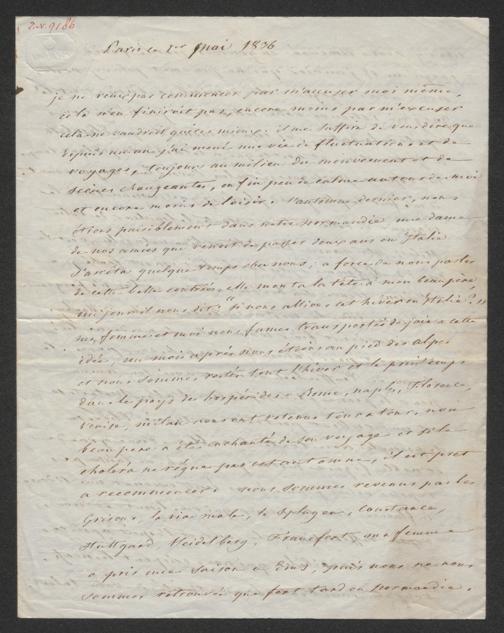 2.v.9186
Paris ce 1er mai 1836
je ne veux pas commencer par m'accuser moi même,
cela n'en finirait pas, encore moins par m'excuser
cela ne vaudroit guères mieux. il me suffira de vous dire que
depuis un an j'ai mené une vie de fluctuations et de
voyages, toujours au milieu du mouvement et de
scènes changeantes, enfin peu de calme autour de moi
et encore moins de loisir. l'automne dernier, nous
étions paisiblement dans notre Normandie une dame
de nos amies qui venoit de passer deux ans en Italie
s'arrêta quelque temps chez nous, à force de nous parler
de cette belle contrée, elle monta la tête à mon beau père
qui un soir nous dit: "si nous allions cet hiver en Italie?"
ma femme et moi nous fumes transportés de joie à cette
idée, un mois après nous étions au pied des alpes
et nous sommes restés tout l'hiver et le printemps
dans le pays des hespérides. Rome, naples, Florence,
Venise, milan nous ont retenus tour à tour, mon
beau père a été enchanté de son voyage et si le
choléra ne règne pas cet automne, il est prêt
à recommencer. nous sommes revenus par les
Grisons, la via mala, le Splugen, Constance,
Stuttgard Heidelberg, Francfort, ma femme
a pris une saison à Ems, puis nous ne nous
sommes retrouvés que fort tard en Normandie,